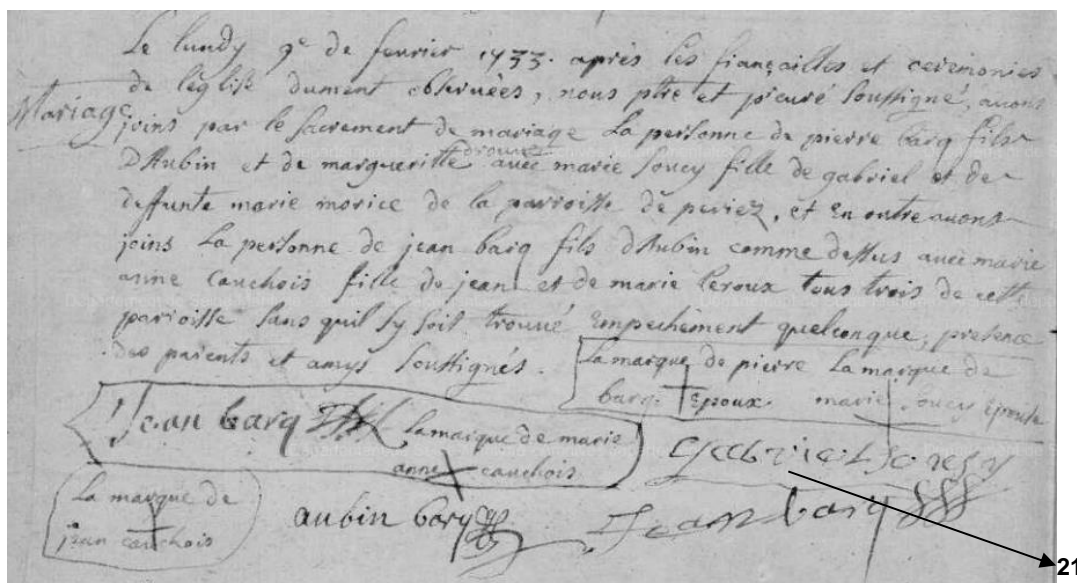 Le lundy 9e de fevrier 1733. après les fiançailles et ceremonies
de leglise dument observées, nous ptre et curé soussigné, avons
Mariage
joins par le sacrement de mariage La personne de pierre barq fils
D'Aubin et de margueritte drouet avec marie soucy fille de gabriel et de
deffunte marie morice de la parroisse de periez, et En outre avons
joins La personne de jean barq fils d'Aubin comme dessus avec marie
anne Cauchois fille de jean et de marie Leroux tous trois de cette
parroisse sans quil sy soit trouvé Empechement quelconque, presence
des parents et amys soussignés.
La marque de pierre
barq. Epoux.
La marque de
marie soucy Epouse
Jean barq
La marque de marie
anne cauchois
Gabriel Soucy
La marque de
jean cauchois
aubin barq
Jean barq
21